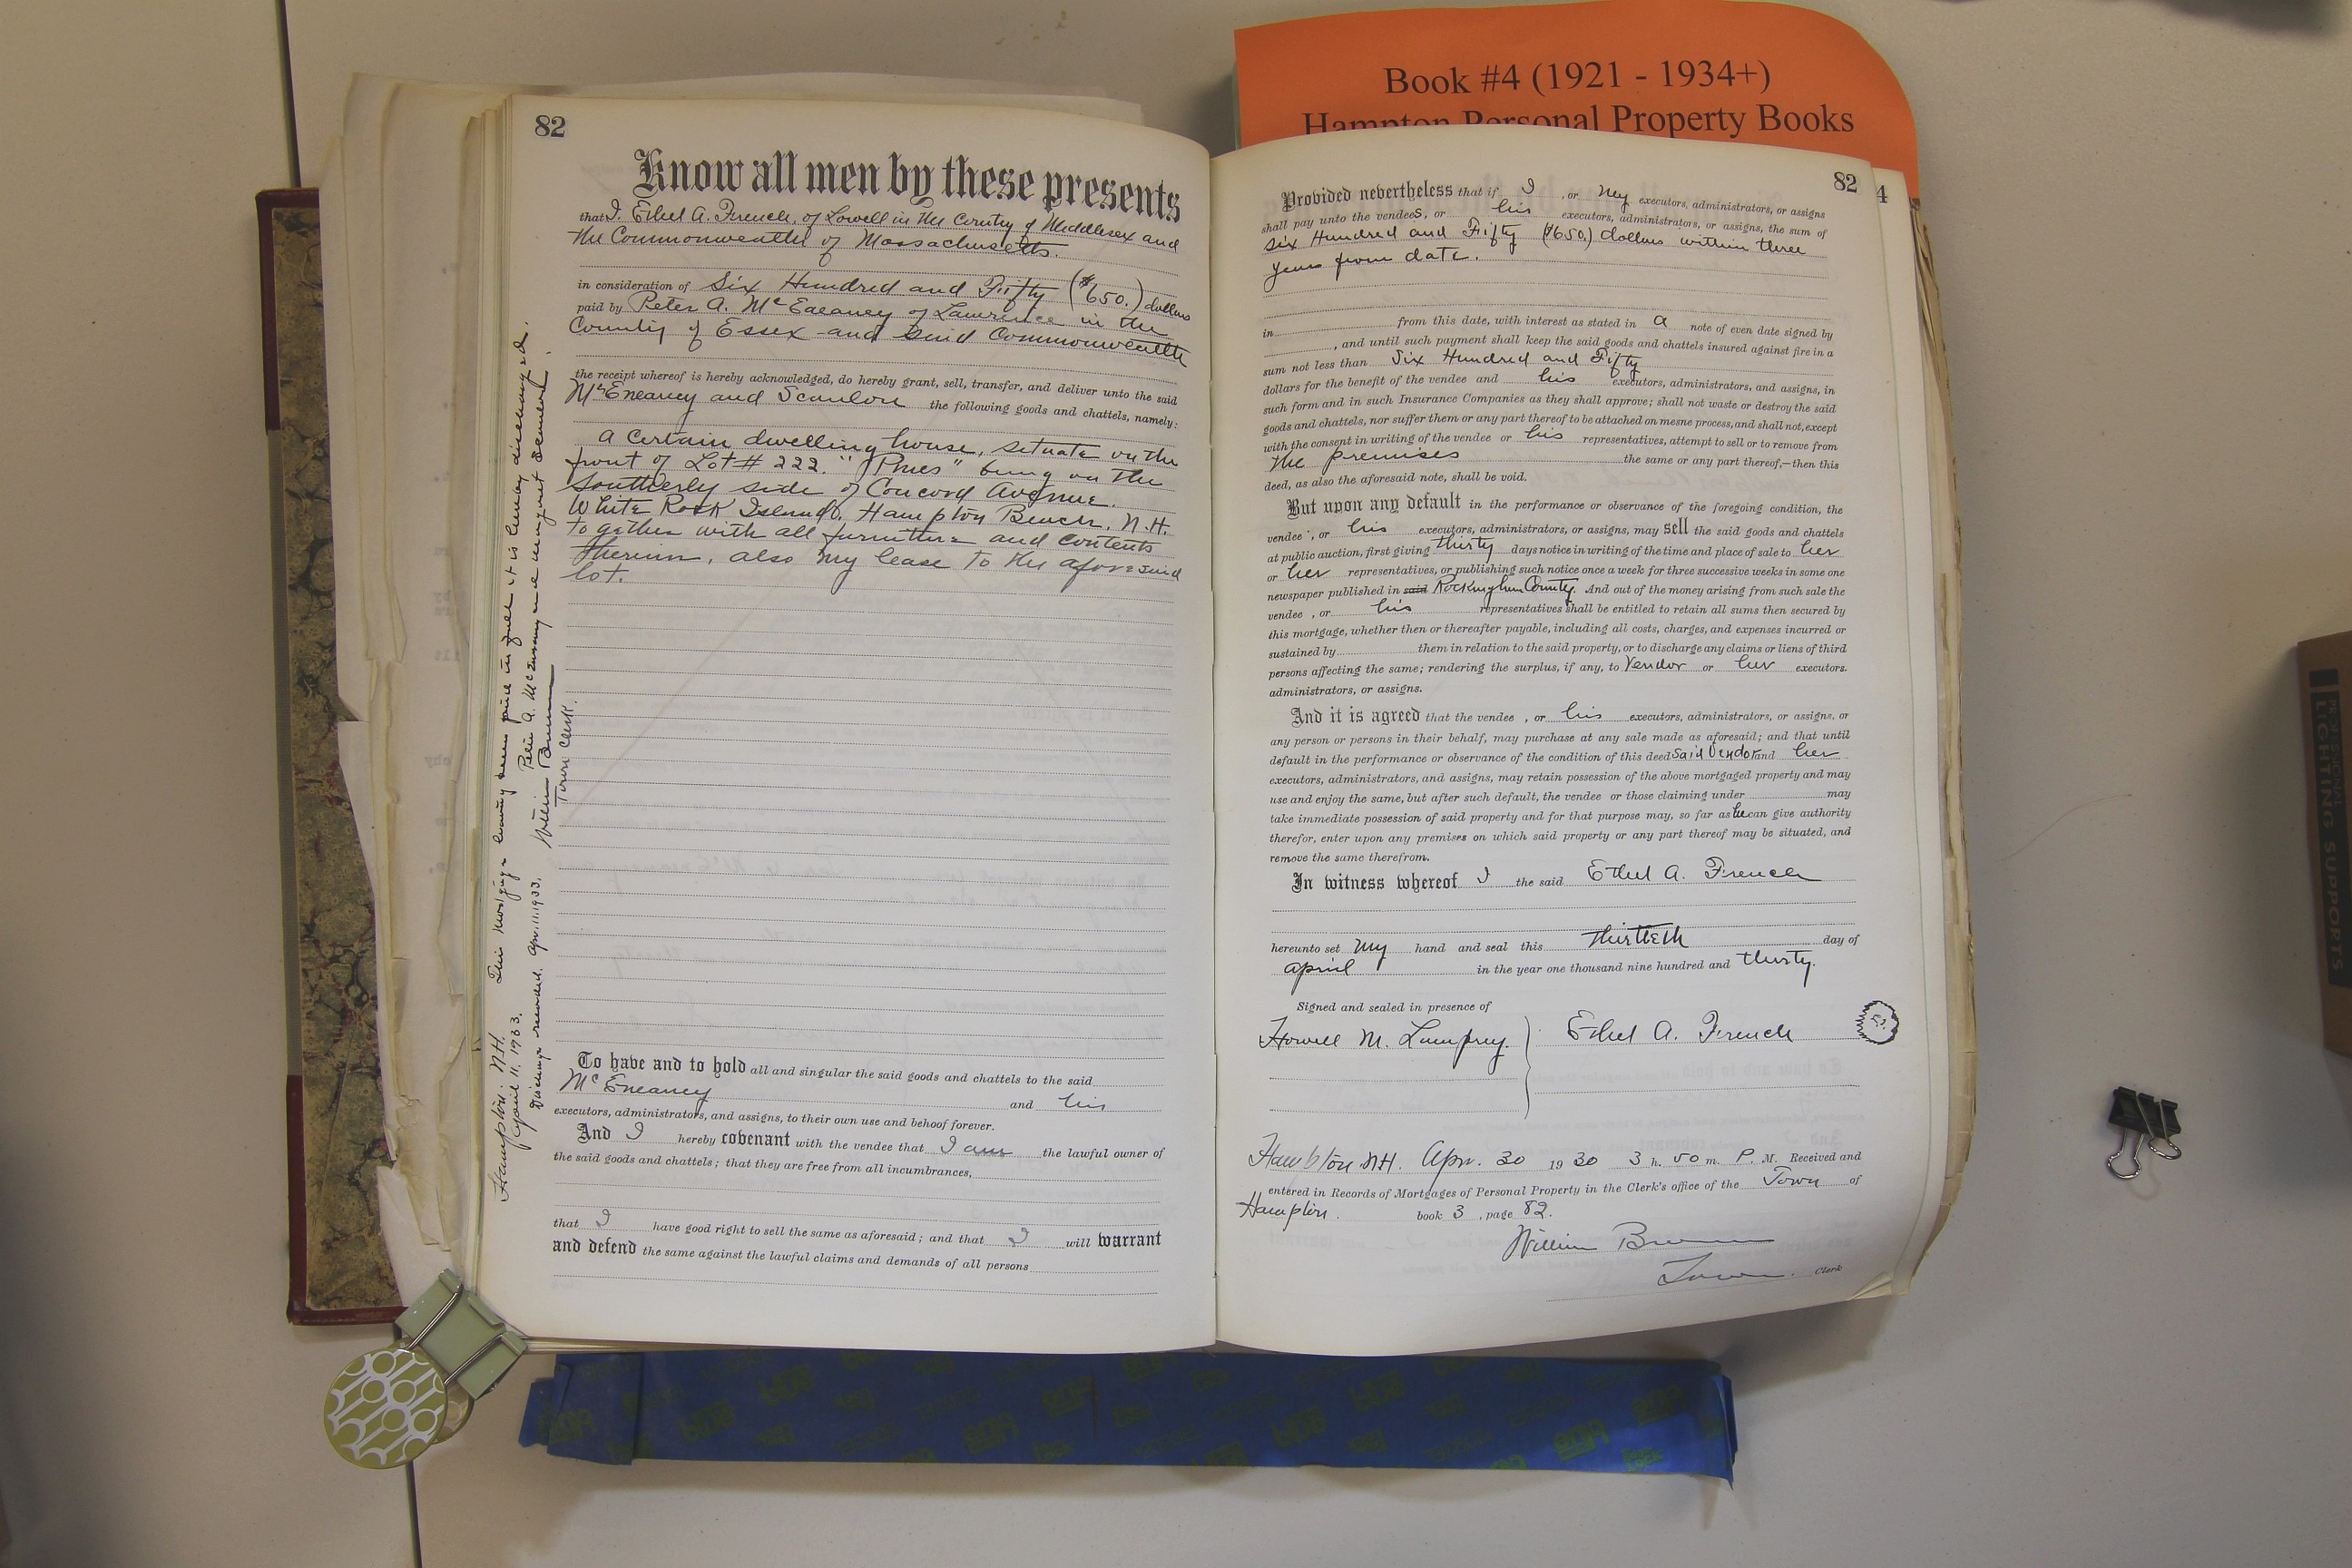 Book #4 (1921 - 1934+)
Hampton Personal Property Books
4
82
Know all men by these presents
that I. Ethel A. French, of Lowell in the County of Middlesex and
the Commonwealth of Massachusetts.
in consideration of Six Hundred and Fifty ($650.) dollars
paid by Peter A. McEneaney of Lawrence in the
County of Essex and said Commonwealth
the receipt whereof is hereby acknowledged, do hereby grant, sell, transfer, and deliver unto the said
McEneaney and Scanlon the following goods and chattels, namely:
a certain dwelling house, situate on the
front of Lot # 222. "Pines" being on the
Southerly side of Concord Avenue.
White Rock Island, Hampton Beach, N.H.
together with all furniture and contents
therein, also my lease to the aforesaid
lot.
To have and to hold all and singular the said goods and chattels to the said
McEneaney and his
executors, administrators, and assigns, to their own use and behoof forever.
And I hereby covenant with the vendee that I am the lawful owner of
the said goods and chattels; that they are free from all incumbrances,
that I have good right to sell the same as aforesaid; and that I will warrant
and defend the same against the lawful claims and demands of all persons
Hampton. N.H. This mortgage having been paid in full it is hereby discharged.
April 11, 1933. Peter A. McEneaney and Margaret Scanlon.
Discharge recorded. Apr. 11, 1933. William Brown
Town Clerk.
82
Provided nevertheless that if I, or my executors, administrators, or assigns
shall pay unto the vendees, or his executors, administrators, or assigns, the sum of
Six Hundred and Fifty ($650.) dollars within three
years from date.
in from this date, with interest as stated in a note of even date signed by
, and until such payment shall keep the said goods and chattels insured against fire in a
sum not less than Six Hundred and Fifty
dollars for the benefit of the vendee and his executors, administrators, and assigns, in
such form and in such Insurance Companies as they shall approve; shall not waste or destroy the said
goods and chattels, nor suffer them or any part thereof to be attached on mesne process, and shall not, except
with the consent in writing of the vendee or his representatives, attempt to sell or to remove from
the premises the same or any part thereof,—then this
deed, as also the aforesaid note, shall be void.
But upon any default in the performance or observance of the foregoing condition, the
vendee, or his executors, administrators, or assigns, may sell the said goods and chattels
at public auction, first giving thirty days notice in writing of the time and place of sale to her
or her representatives, or publishing such notice once a week for three successive weeks in some one
newspaper published in said Rockingham County. And out of the money arising from such sale the
vendee, or his representatives shall be entitled to retain all sums then secured by
this mortgage, whether then or thereafter payable, including all costs, charges, and expenses incurred or
sustained by them in relation to the said property, or to discharge any claims or liens of third
persons affecting the same; rendering the surplus, if any, to Vendor or her executors.
administrators, or assigns.
And it is agreed that the vendee, or his executors, administrators, or assigns, or
any person or persons in their behalf, may purchase at any sale made as aforesaid; and that until
default in the performance or observance of the condition of this deed Said Vendor and her
executors, administrators, and assigns, may retain possession of the above mortgaged property and may
use and enjoy the same, but after such default, the vendee or those claiming under may
take immediate possession of said property and for that purpose may, so far as he can give authority
therefor, enter upon any premises on which said property or any part thereof may be situated, and
remove the same therefrom.
In witness whereof I the said Ethel A. French
hereunto set my hand and seal this thirtieth day of
April in the year one thousand nine hundred and thirty.
Signed and sealed in presence of
Howell M. Lamprey. Ethel A. French
Hampton N.H. Apr. 30 1930 3 h. 50 m. P. M. Received and
entered in Records of Mortgages of Personal Property in the Clerk's office of the Town of
Hampton. book 3, page 82.
William Brown
Town. Clerk
LIGHTING SUPPORTS